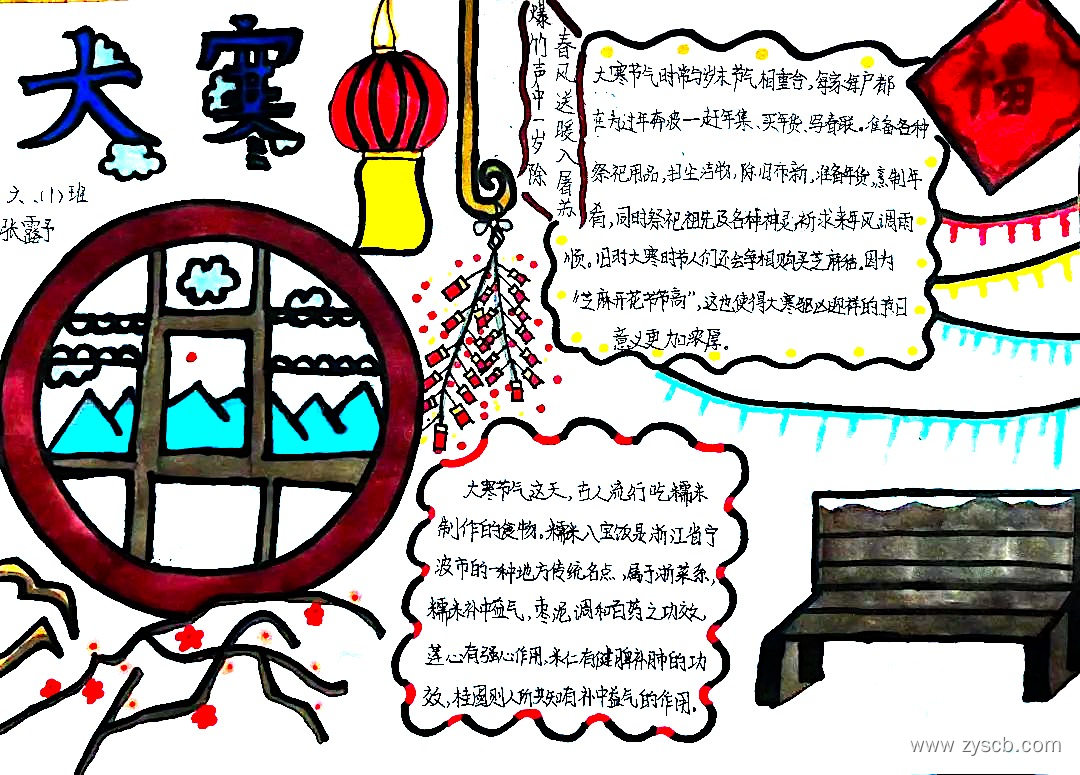 大寒
六、(1)班
张露予
爆竹声中一岁除
春风送暖入屠苏
福
大寒节气时常与岁末节气相重合,每家每户都
在为过年奔波一赶年集、买年货、写春联。准备各种
祭祀用品,扫尘洁物,除旧布新,准备年货,烹制年
肴,同时祭祀祖先及各种神灵,祈求来年风调雨
顺。旧时大寒时节人们还会争相购买芝麻秸。因为
"芝麻开花节节高",这也使得大寒驱凶迎祥的节日
意义更加浓厚。
大寒节气这天,古人流行吃糯米
制作的食物。糯米八宝饭是浙江省宁
波市的一种地方传统名点,属于浙菜系,
糯米补中益气,枣泥调和百药之功效,
莲心有强心作用,米仁有健脾补肺的功
效,桂圆则人所共知有补中益气的作用。
www.zyscb.com